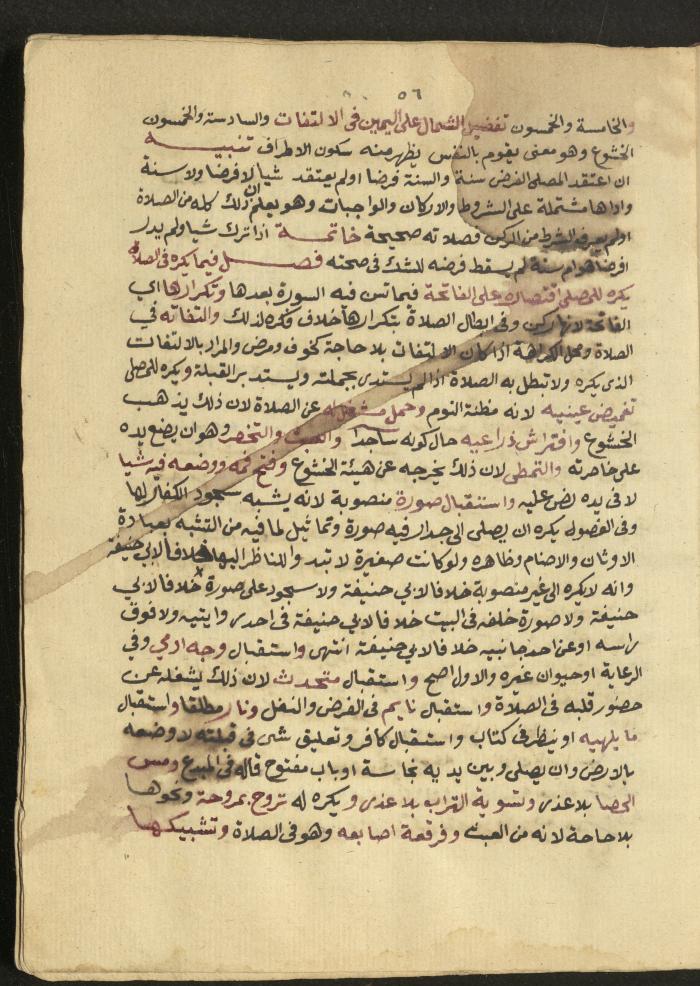 ٥٦
والخامسة والخمسون تفضيل الشمال على اليمين فى الالتفات والسادسة والخمسون
الخشوع وهو معنى يقوم بالنفس يظهر منه سكون الاطراف تنبيه
ان اعتقد المصلى الفرض سنة والسنة فرضا او لم يعتقد شيا لا فرضا ولا سنة
واداها مشتملة على الشروط والاركان والواجبات وهو يعلم ان ذلك كله من الصلاة
او لم يعرف الشرط من الركن فصلاته صحيحة خاتمة اذا ترك شيا ولم يدر
افرض هو ام سنة لم يسقط فرضه للشك فى صحته فصل فيما يكره فى الصلاة
يكره للمصلى اقتصاره على الفاتحة فيما تسن فيه السورة بعدها وتكرارها اى
الفاتحة لانها ركن وفى ابطال الصلاة بتكرارها خلاف فكره لذلك والتفاته فى
الصلاة ومحل الكراهة اذا كان الالتفات بلا حاجة كخوف ومرض والمراد بالالتفات
الذى يكره ولا تبطل به الصلاة اذا لم يستدر بجملته ويستدبر القبلة ويكره للمصلى
تغميض عينيه لانه مظنة النوم وحمل مشغل له عن الصلاة لان ذلك يذهب
الخشوع وافتراش ذراعيه حال كونه ساجدا والعبث والتخصر وهو ان يضع يده
على خاصرته والتمطى لان ذلك يخرجه عن هيئة الخشوع وفتح فمه ووضعه فيه شيا
لا فى يده نص عليه واستقبال صورة منصوبة لانه يشبه سجود الكفار لها
وفى الفصول يكره ان يصلى الى جدار فيه صورة وتماثيل لما فيه من التشبه بعبادة
الاوثان والاصنام وظاهره ولو كانت صغيرة لا تبدو للناظر اليها خلافا لابى حنيفة
وانه لا يكره الى غير منصوبة خلافا لابى حنيفة ولا سجود على صورة خلافا لابى
حنيفة ولا صورة خلفه فى البيت خلافا لابى حنيفة فى احدى روايتيه ولا فوق
راسه او عن احد جانبيه خلافا لابى حنيفة انتهى واستقبال وجه ادمى وفى
الرعاية او حيوان غيره والاول اصح واستقبال متحدث لان ذلك يشغله عن
حضور قلبه فى الصلاة واستقبال نايم فى الفرض والنفل ونار مطلقا واستقبال
ما يلهيه او ينظر فى كتاب واستقبال كافر وتعليق شى فى قبلته لا وضعه
بالارض وان يصلى وبين يديه نجاسة او باب مفتوح قاله فى المبدع ومس
الحصا بلا عذر وتسوية التراب بلا عذر ويكره له تروح بمروحة ونحوها
بلا حاجة لانه من العبث وفرقعة اصابعه وهو فى الصلاة وتشبيكها